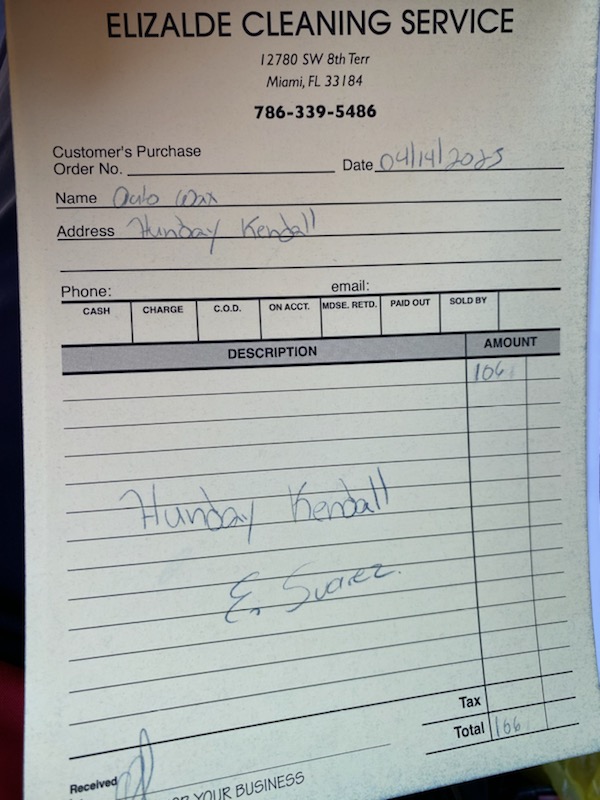 ELIZALDE CLEANING SERVICE
12780 SW 8th Terr
Miami, FL 33184
786-339-5486
Customer's Purchase
Order No. Date 04/14/2025
Name Auto Wax
Address Hunday Kendall
Phone: email:
CASH CHARGE C.O.D. ON ACCT. MDSE. RETD. PAID OUT SOLD BY
DESCRIPTION AMOUNT
106
Hunday Kendall
E. Suarez.
Tax
Total 166
Received
YOUR BUSINESS